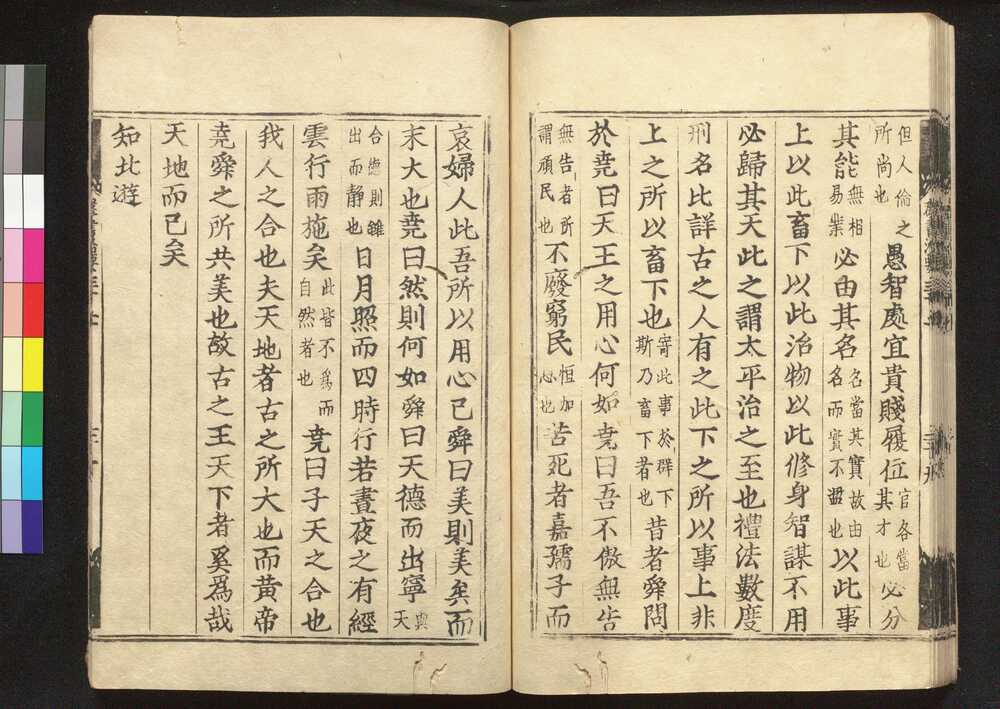 但人倫之所尚也愚智處宜貴賤履位官各當其才也必分
其能無相易業必由其名名當其實故由名而實不濫也以此事
上以此畜下以此治物以此修身智謀不用
必歸其天此之謂太平治之至也禮法數度
刑名比詳古之人有之此下之所以事上非
上之所以畜下也寄此事於群下斯乃畜下者也昔者舜問
於堯曰天王之用心何如堯曰吾不傲無告
無告者所謂頑民也不廢窮民恒加恩也苦死者嘉孺子而
哀婦人此吾所以用心已舜曰美則美矣而
末大也堯曰然則何如舜曰天德而出寧與天
合德則雖出而静也日月照而四時行若晝夜之有經
雲行雨施矣此皆不爲而自然者也堯曰子天之合也
我人之合也夫天地者古之所大也而黃帝
堯舜之所共美也故古之王天下者奚爲哉
天地而已矣
知北遊